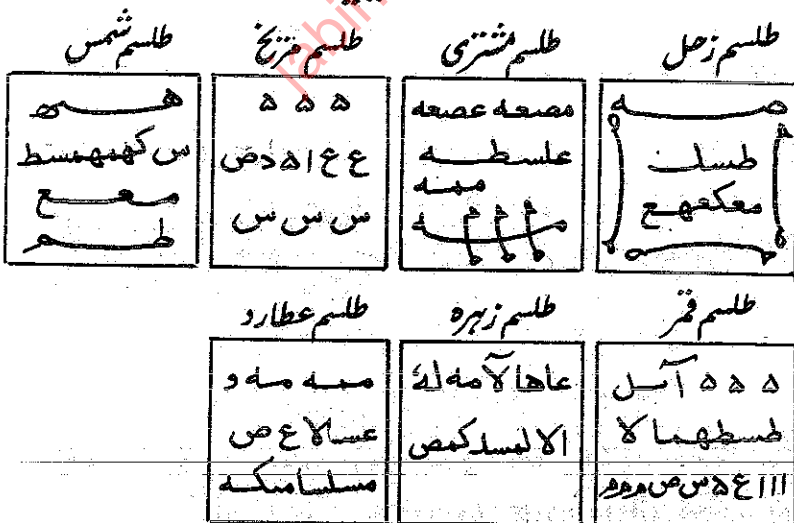 طلسم زحل
صـــه
طسلت
معکعهع
طلسم مشتری
مصعه عصعه
علسطـــه
ممـه
طلسم مریخ
ه ه ه
ع ع ا ه د ص
س س س
طلسم شمس
هـــه
س کهیهسط
معـــع
طـــم
طلسم قمر
ه ه ه آسل
طسطهما لا
ااا ع ه س ص م م م
طلسم زہرہ
عاها لا مه له
الا لمسد کمص
طلسم عطارد
ممـه مـه و
عسالا ع ص
مسلسامکـه